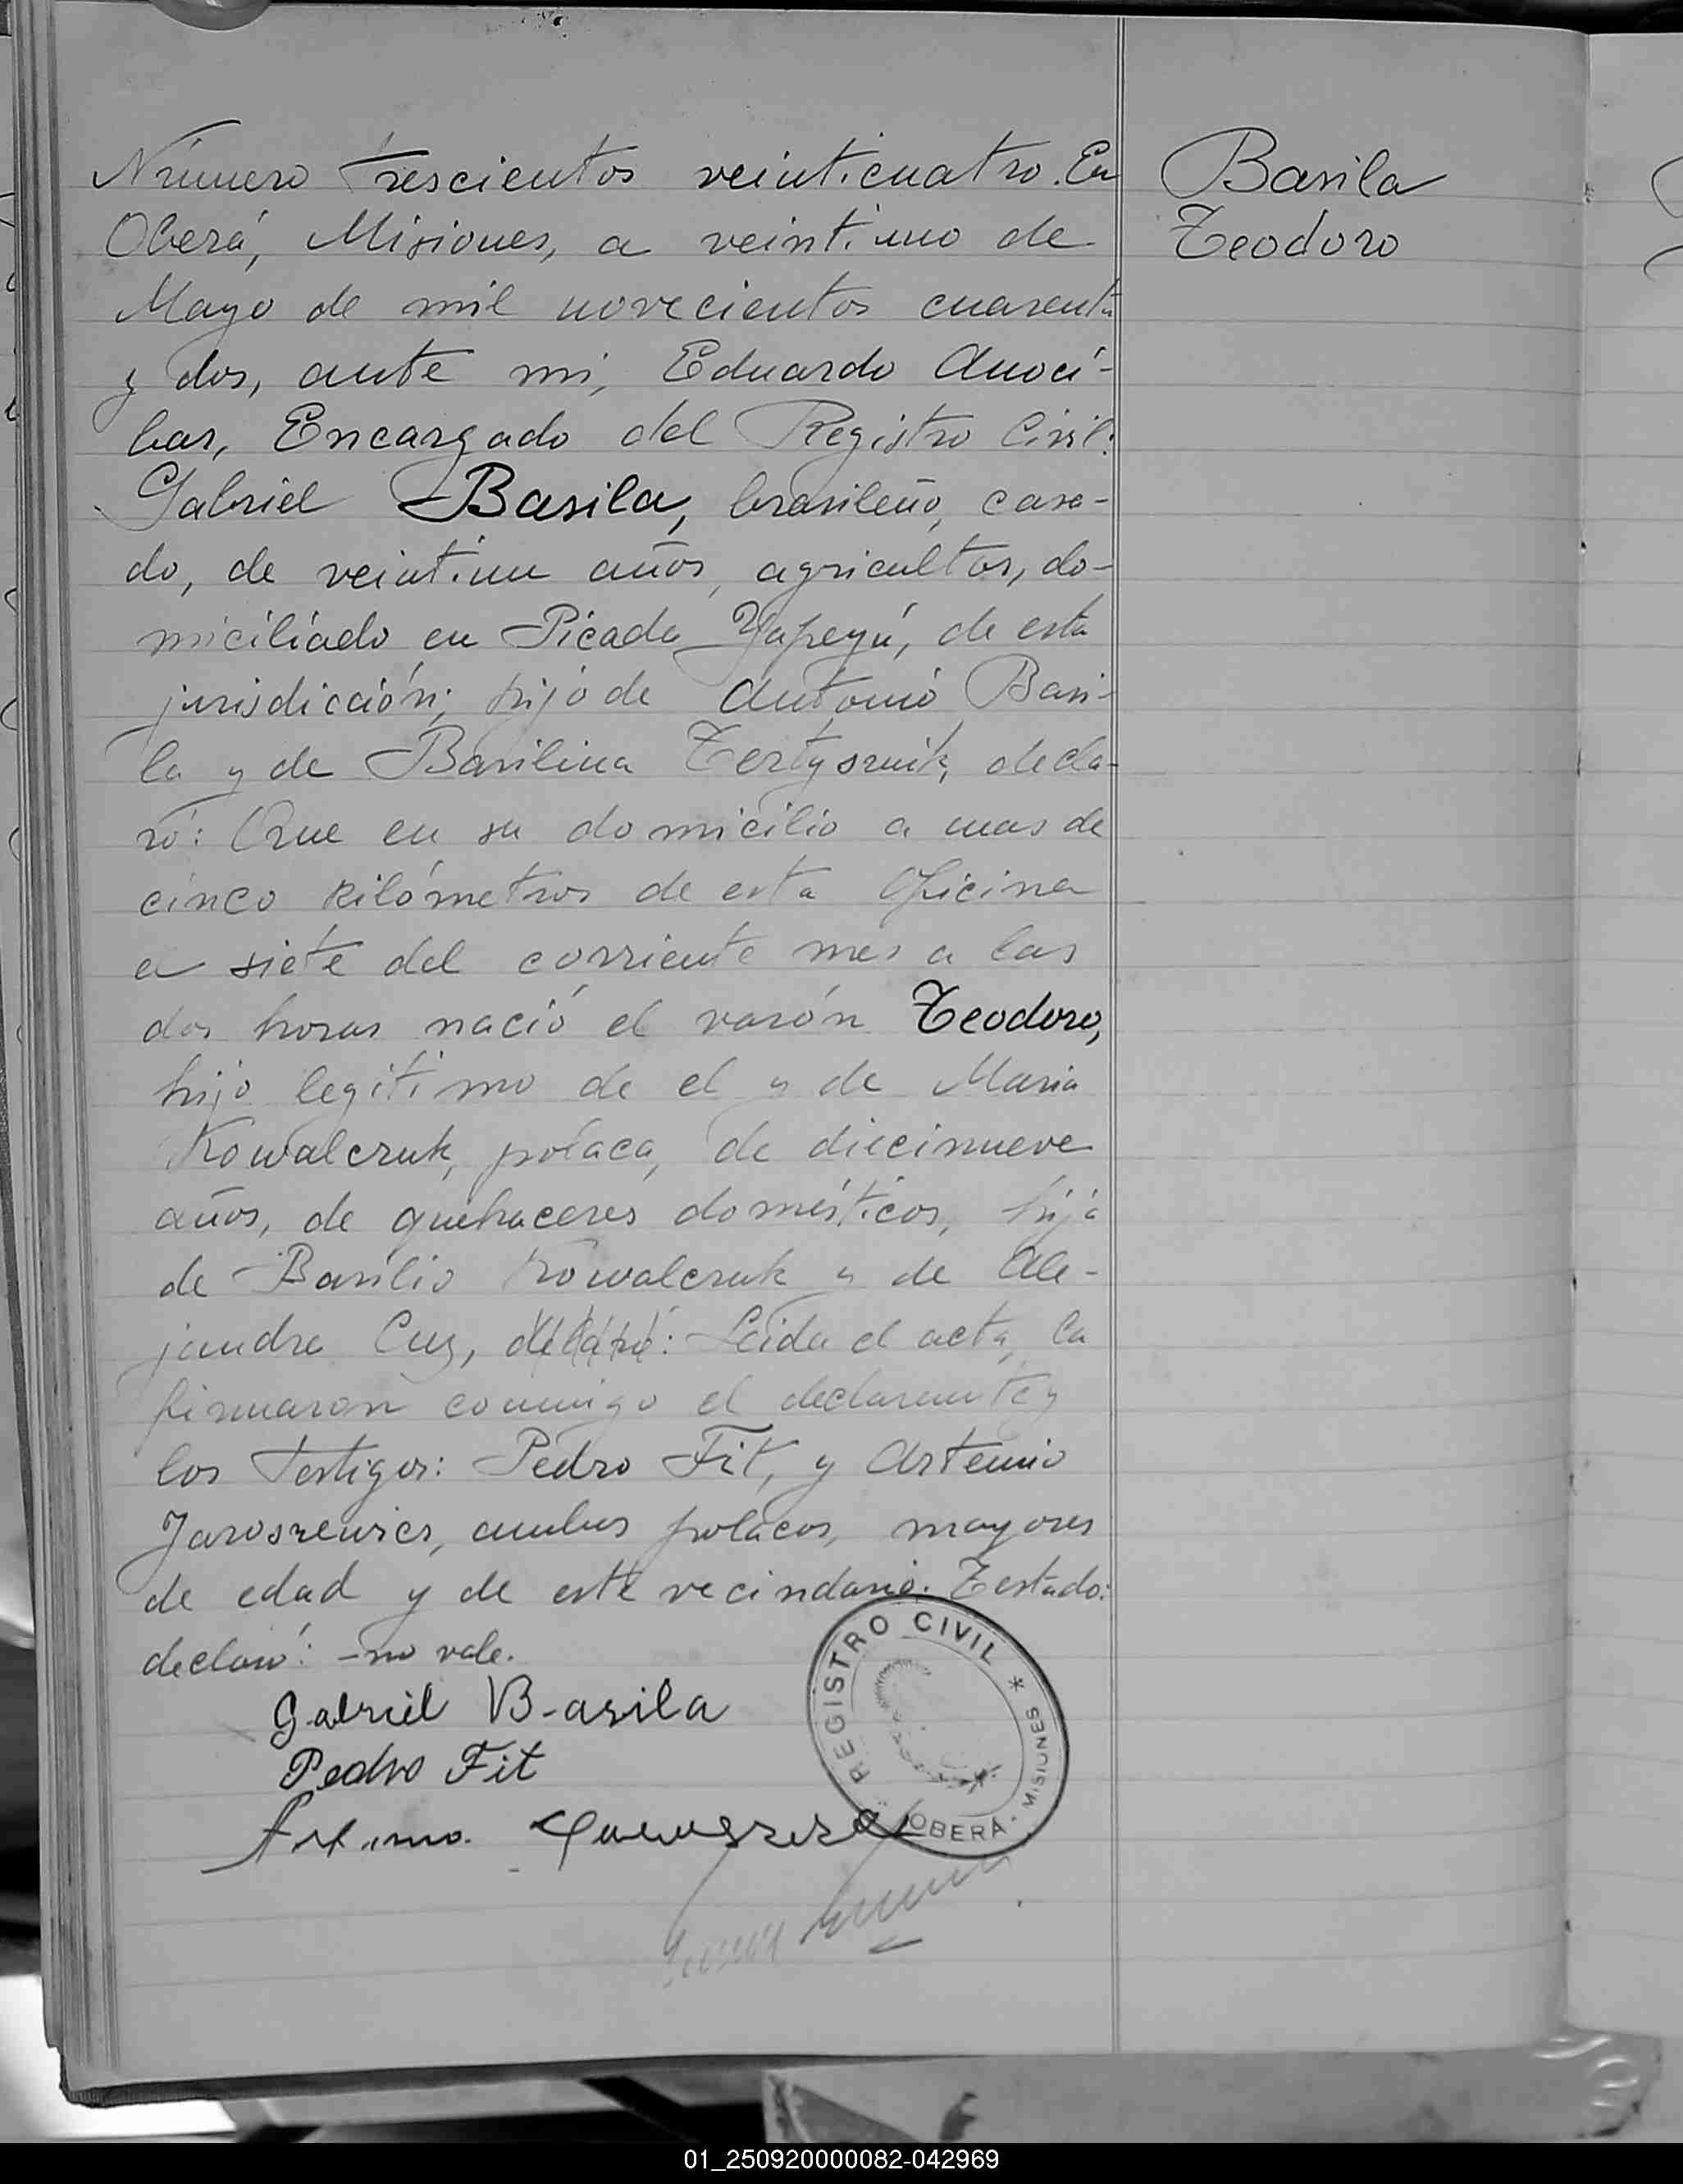 Número trescientos veinticuatro. En
Oberá, Misiones, a veintiuno de
Mayo de mil novecientos cuarenta
y dos, ante mi, Eduardo Anocí-
bar, Encargado del Registro Civil:
Gabriel Basila, brasileño, casa-
do, de veintiun años, agricultor, do-
miciliado en Picada Yapeyú, de esta
jurisdicción; hijo de Antonio Basi-
la y de Basilina Tertysznik, decla-
ró: Que en su domicilio a mas de
cinco kilómetros de esta Oficina
a siete del corriente mes a las
dos horas nació el varón Teodoro,
hijo legítimo de el y de Maria
Kowalczuk, polaca, de diecinueve
años, de quehaceres domésticos, hija
de Basilio Kowalczuk y de Ale-
jandra Cuz, declaró: Leida el acta, la
firmaron conmigo el declarante y
los testigos: Pedro Fit, y Artemio
Jaroszewicz, ambos polacos, mayores
de edad y de este vecindario. Testado:
declaró: -no vale.
Gabriel B-asila
Pedro Fit
REGISTRO CIVIL * OBERÁ - MISIONES
Basila
Teodoro
01_250920000082-042969